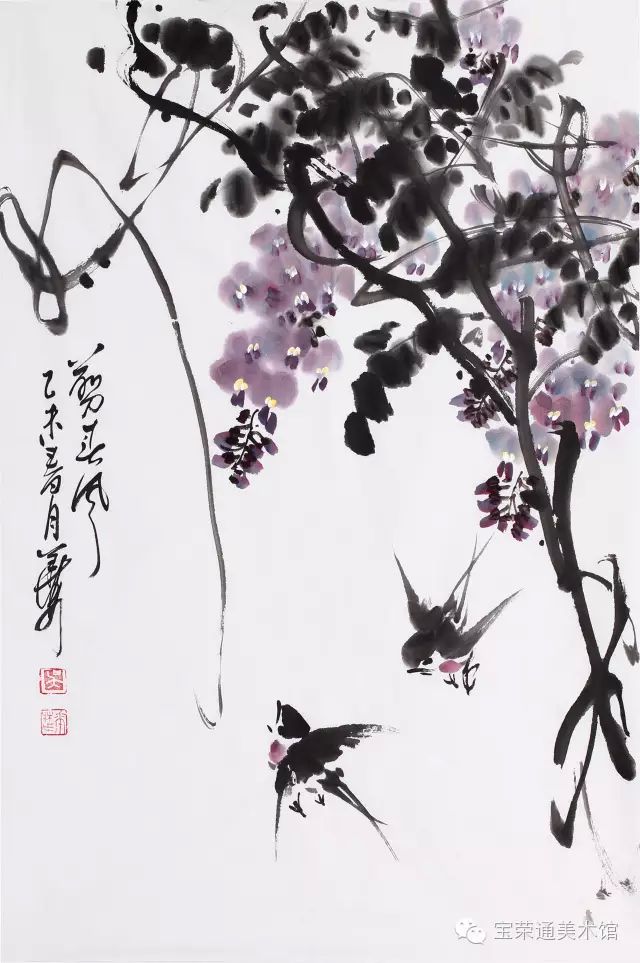 剪春风
乙未春月
宝荣通美术馆